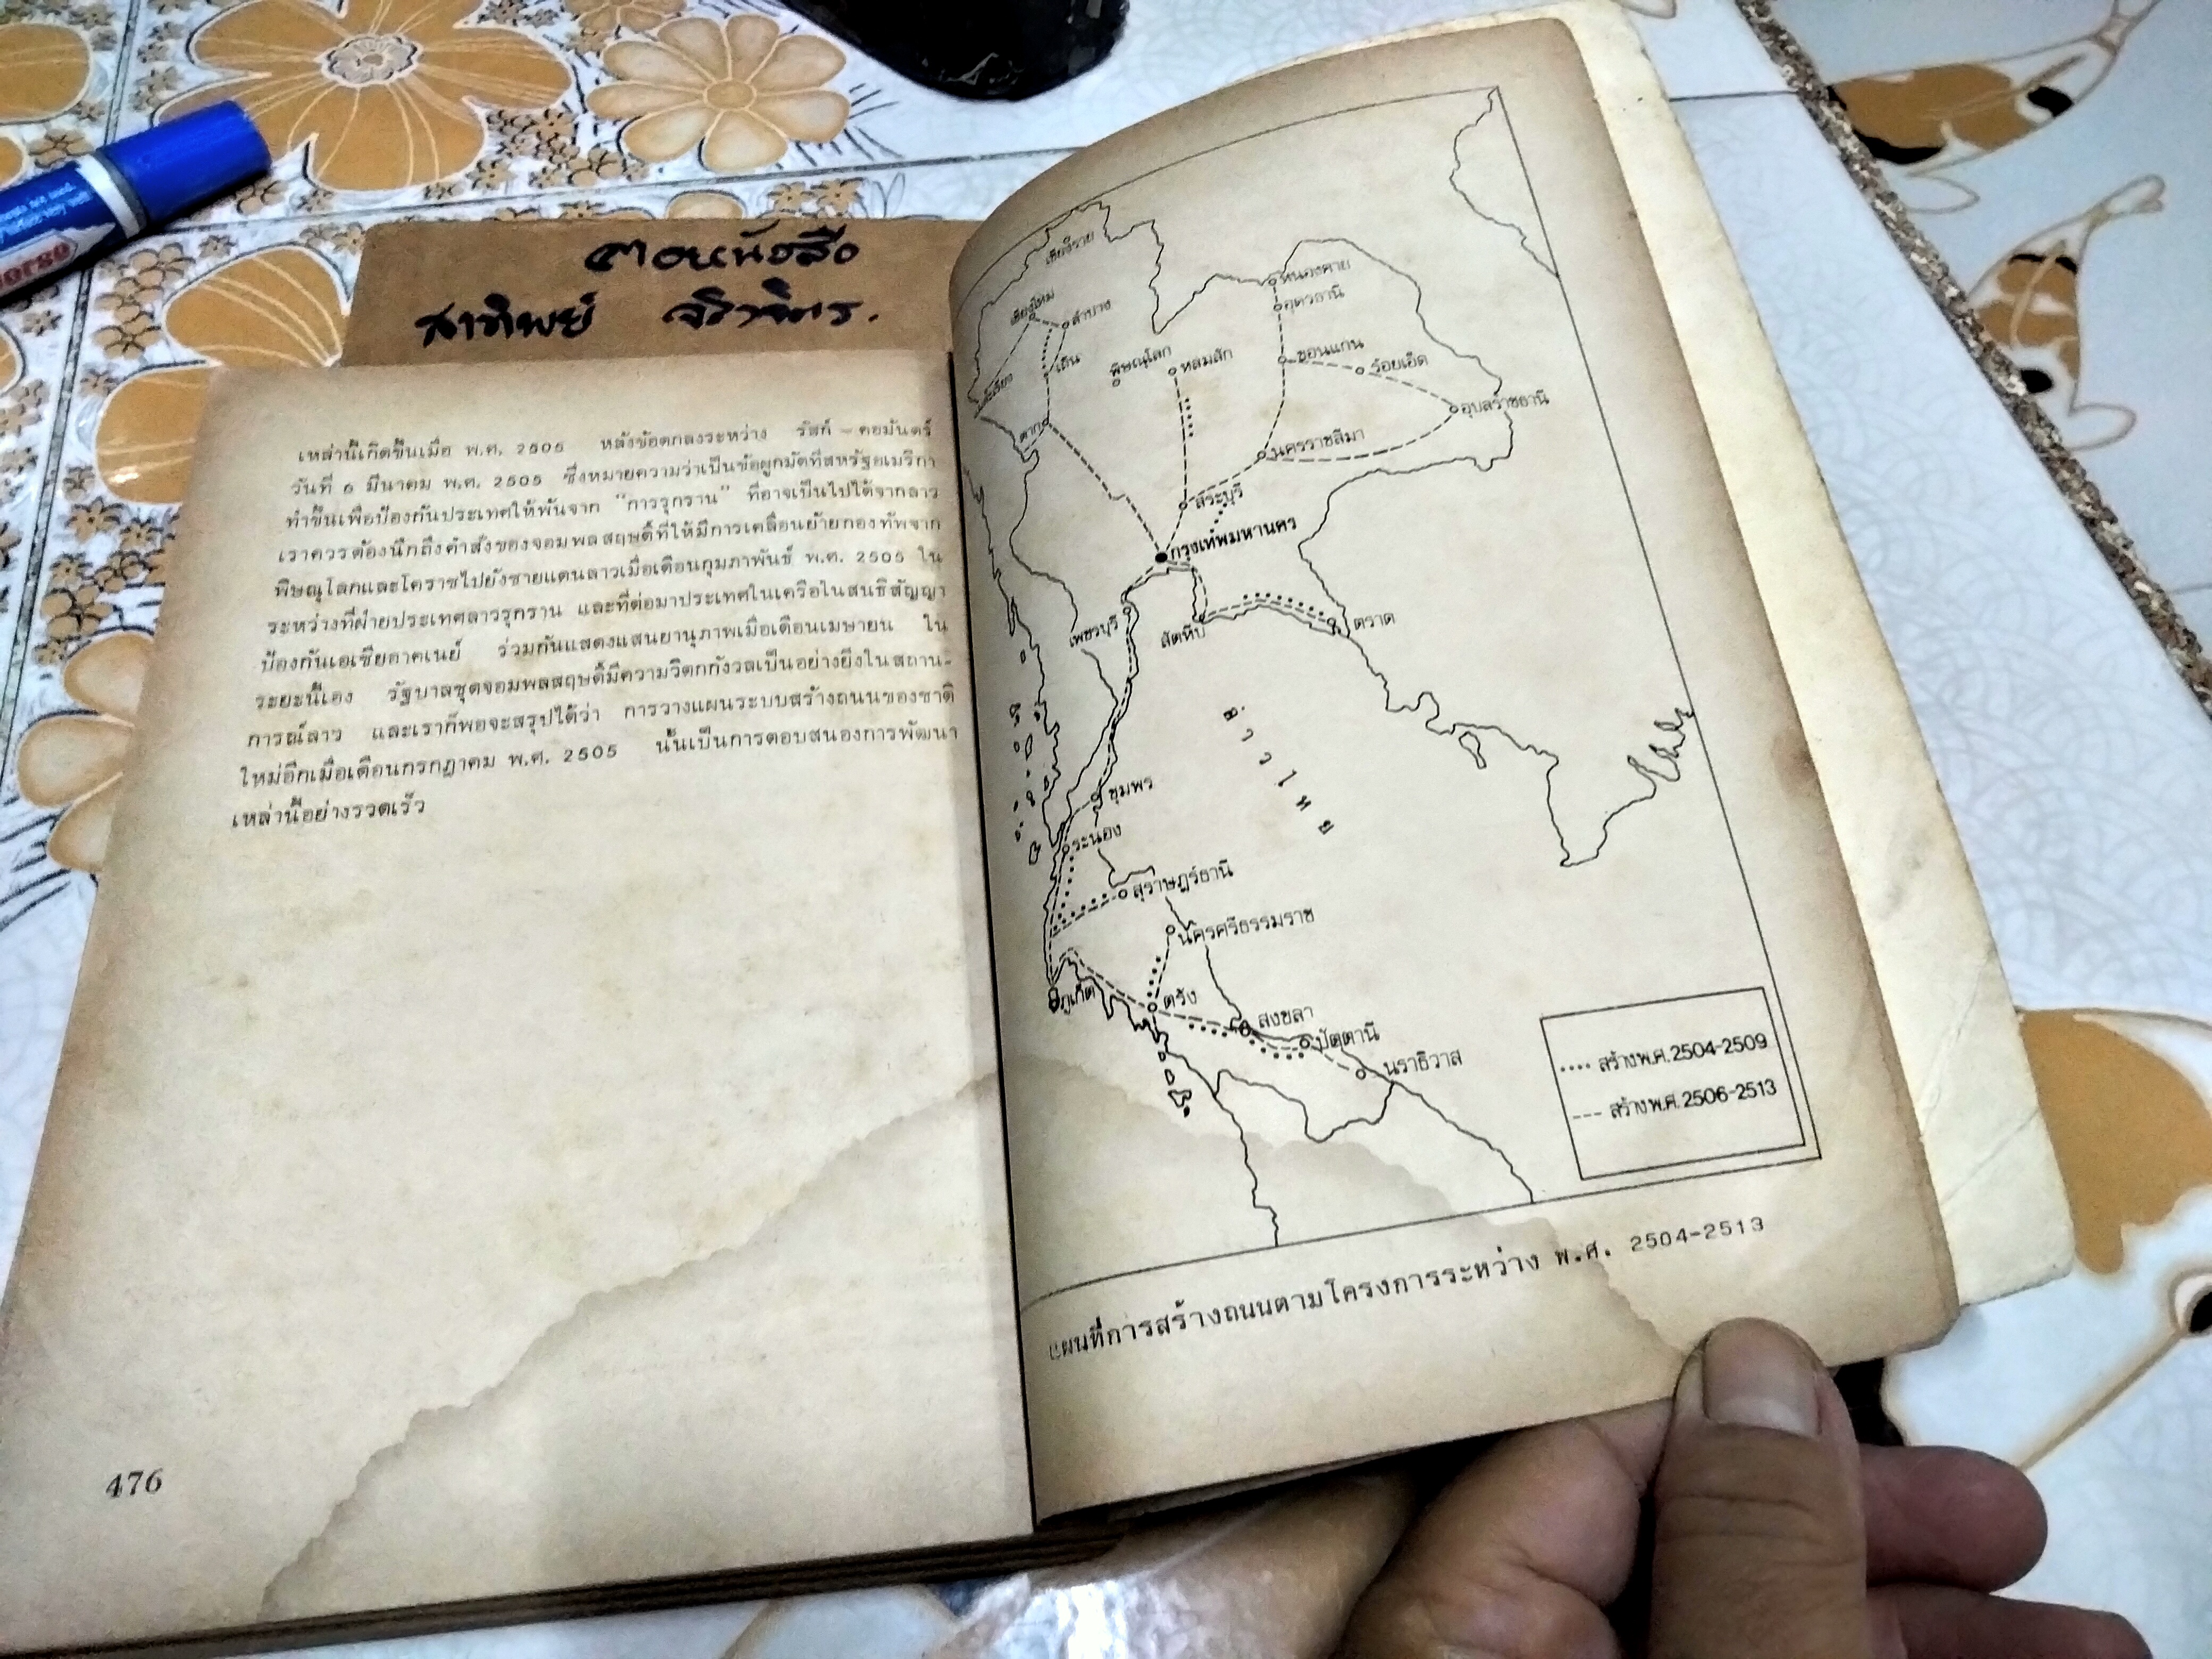 ตอหนังสือ
สาทิพย์
horse
เหล่านี้เกิดขึ้นเมื่อ พ.ศ. 2505 หลังข้อตกลงระหว่าง รัสก์ - คอมันตร์
วันที่ 6 มีนาคม พ.ศ. 2505 ซึ่งหมายความว่าเป็นข้อผูกมัดที่สหรัฐอเมริกา
ทำขึ้นเพื่อป้องกันประเทศให้พ้นจาก "การรุกราน" ที่อาจเป็นไปได้จากลาว
เราควรต้องนึกถึงคำสั่งของจอมพลสฤษดิ์ที่ให้มีการเคลื่อนย้ายกองทัพจาก
พิษณุโลกและโคราชไปยังชายแดนลาวเมื่อเดือนกุมภาพันธ์ พ.ศ. 2505 ใน
ระหว่างที่ฝ่ายประเทศลาวรุกราน และที่ต่อมาประเทศในเครือในสนธิสัญญา
ป้องกันเอเซียอาคเนย์ ร่วมกันแสดงแสนยานุภาพเมื่อเดือนเมษายน ใน
ระยะนี้เอง รัฐบาลชุดจอมพลสฤษดิ์มีความวิตกกังวลเป็นอย่างยิ่งในสถาน-
การณ์ลาว และเราก็พอจะสรุปได้ว่า การวางแผนระบบสร้างถนนของชาติ
ใหม่อีกเมื่อเดือนกรกฎาคม พ.ศ. 2505 นั้นเป็นการตอบสนองการพัฒนา
เหล่านี้อย่างรวดเร็ว
476
เชียงราย
เชียงใหม่
ลำปาง
เถิน
ตาก
พิษณุโลก
หล่มสัก
หนองคาย
อุดรธานี
ขอนแก่น
ร้อยเอ็ด
อุบลราชธานี
นครราชสีมา
สระบุรี
กรุงเทพมหานคร
เพชรบุรี
สัตหีบ
ตราด
อ่าวไทย
ชุมพร
ระนอง
สุราษฎร์ธานี
นครศรีธรรมราช
ภูเก็ต
ตรัง
สงขลา
ปัตตานี
นราธิวาส
.... สร้าง พ.ศ. 2504-2509
--- สร้าง พ.ศ. 2506-2513
แผนที่การสร้างถนนตามโครงการระหว่าง พ.ศ. 2504-2513